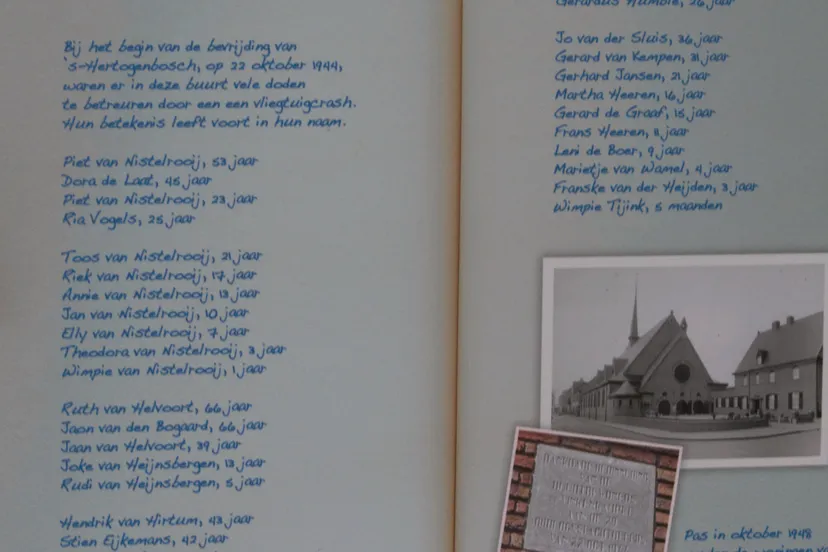 Bij het begin van de bevrijding van
's-Hertogenbosch, op 22 oktober 1944,
waren er in deze buurt vele doden
te betreuren door een een vliegtuigcrash.
Hun betekenis leeft voort in hun naam.
Piet van Nistelrooij, 53 jaar
Dora de Laat, 45 jaar
Piet van Nistelrooij, 23 jaar
Ria Vogels, 25 jaar
Toos van Nistelrooij, 21 jaar
Riek van Nistelrooij, 17 jaar
Annie van Nistelrooij, 13 jaar
Jan van Nistelrooij, 10 jaar
Elly van Nistelrooij, 7 jaar
Theodora van Nistelrooij, 3 jaar
Wimpie van Nistelrooij, 1 jaar
Ruth van Helvoort, 66 jaar
Jaan van den Bogaard, 66 jaar
Jaan van Helvoort, 39 jaar
Joke van Heijnsbergen, 13 jaar
Rudi van Heijnsbergen, 5 jaar
Hendrik van Hirtum, 43 jaar
Stien Eijkemans, 42 jaar
Gerardus Humble, 26 jaar
Jo van der Sluis, 36 jaar
Gerard van Kempen, 31 jaar
Gerhard Jansen, 21 jaar
Martha Heeren, 16 jaar
Gerard de Graaf, 15 jaar
Frans Heeren, 11 jaar
Leni de Boer, 9 jaar
Marietje van Wamel, 4 jaar
Franske van der Heijden, 3 jaar
Wimpie Tijink, 5 maanden
Pas in oktober 1948